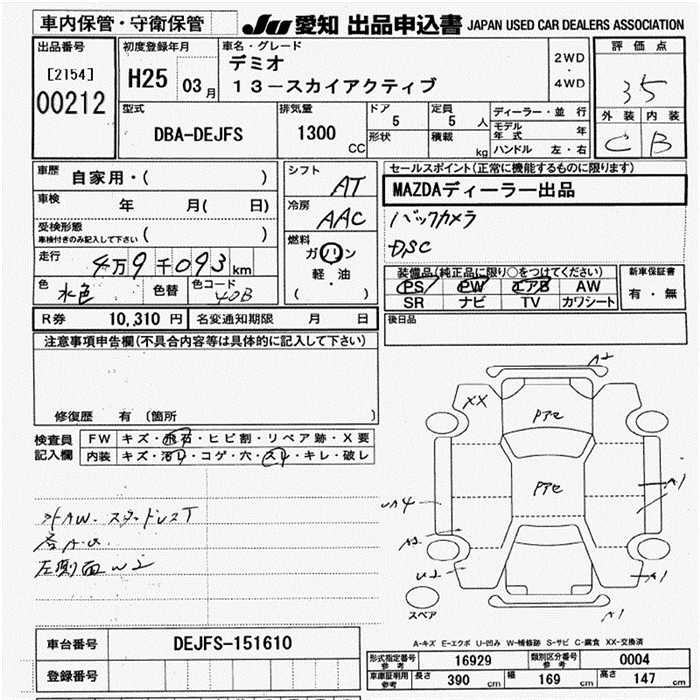 車内保管・守衛保管
JU 愛知 出品申込書 JAPAN USED CAR DEALERS ASSOCIATION
出品番号
[2154]
00212
初度登録年月
H25 03月
車名・グレード
デミオ
13-スカイアクティブ
2WD
・
4WD
評価点
35
外装 内装
C B
型式
DBA-DEJFS
排気量
1300
CC
ドア
5
形状
定員
5 人
積載
kg
ディーラー・並行
モデル年式 年
ハンドル 左・右
車歴
自家用・( )
車検
年 月( 日)
受検形態
車検付きのみ記入して下さい ( )
走行
4万9千093km
色
水色
色替
色コード
40B
シフト
AT
冷房
AAC
燃料
ガソリン
軽・油
( )
セールスポイント(正常に機能するものに限ります)
MAZDAディーラー出品
バックカメラ
DSC
装備品(純正品に限り○をつけてください)
PS PW エアB AW
SR ナビ TV カワシート
新車保証書
有・無
後日品
R券 10,310円 名変通知期限 月 日
注意事項申告欄(不具合内容等は具体的に記入して下さい)
修復歴 有 〔箇所 〕
検査員
記入欄
FW キズ・飛石・ヒビ割・リペア跡・X要
内装 キズ・汚れ・コゲ・穴・スレ・キレ・破レ
外AW.スタッドレスT
各A.U
左側面W2
A2
XX
Pアセ
Pアセ
A1
UA4
A2
U2
A1
A1
スペア
A-キズ E-エクボ U-凹み W-補修跡 S-サビ C-腐食 XX-交換済
車台番号 DEJFS-151610
登録番号
形式指定番号 参考 16929 類別区分番号 参考 0004
車庫証明用 参考 長さ 390 cm 幅 169 cm 高さ 147 cm